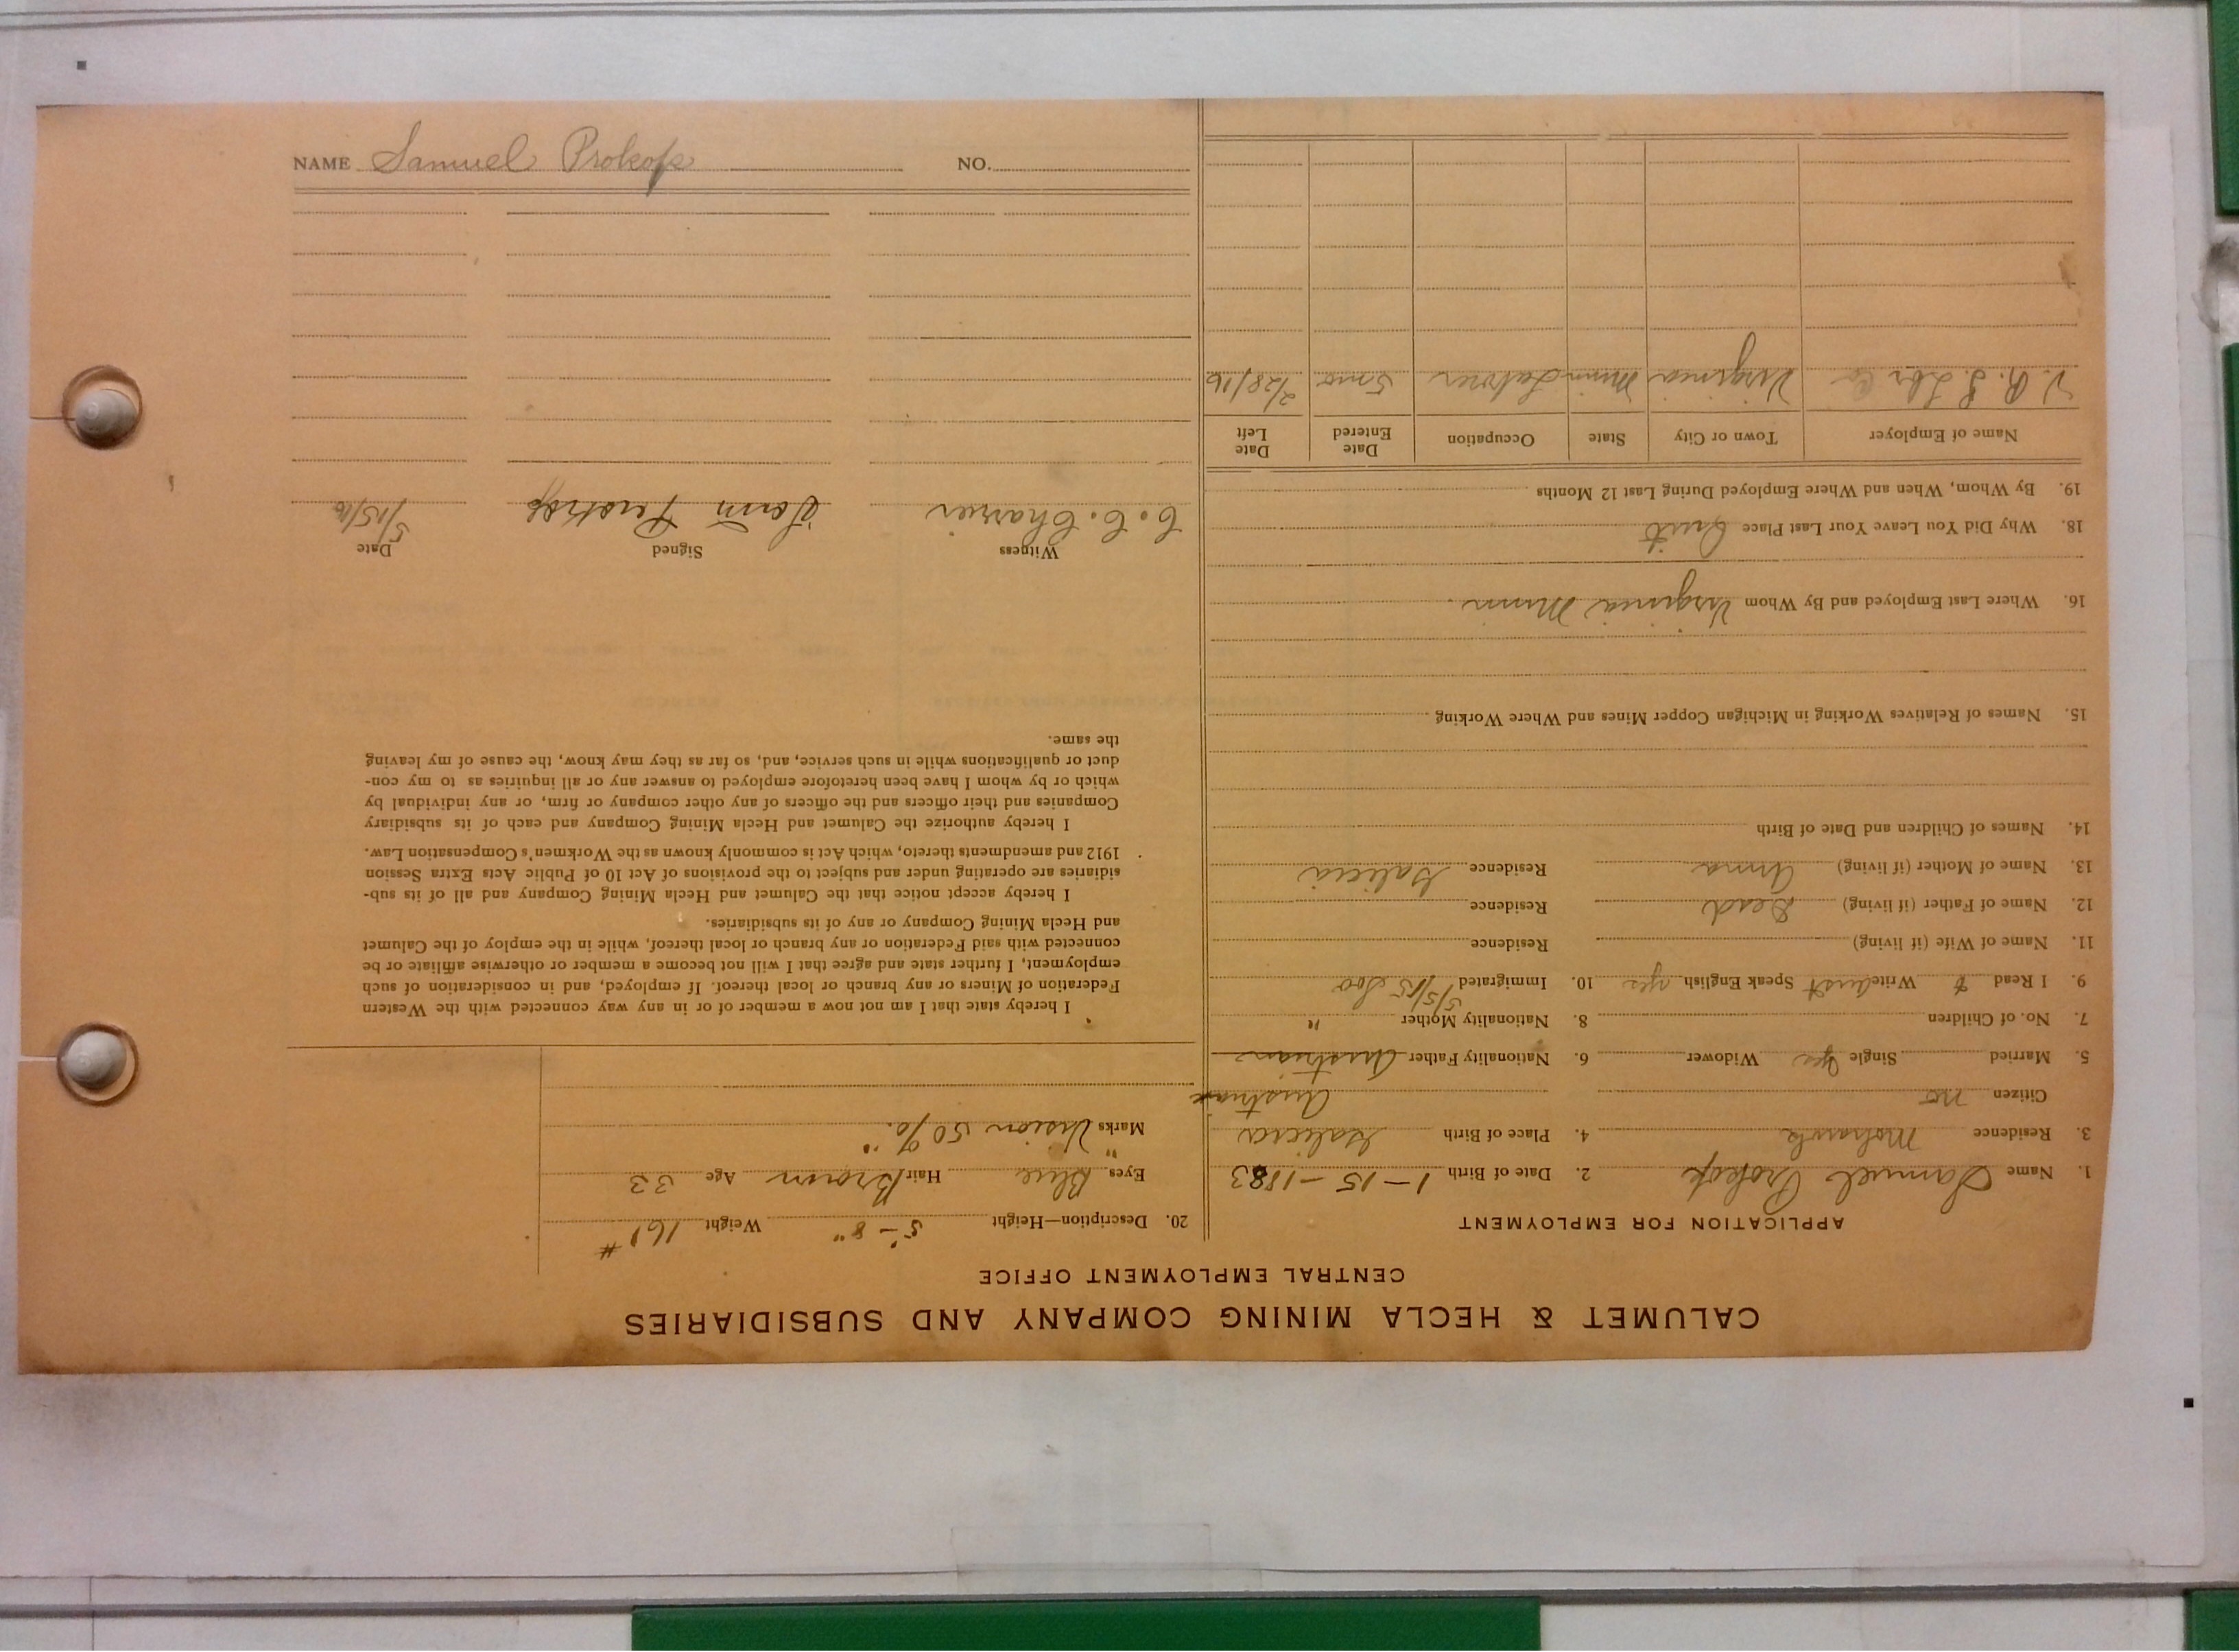 CALUMET & HECLA MINING COMPANY AND SUBSIDIARIES
CENTRAL EMPLOYMENT OFFICE
APPLICATION FOR EMPLOYMENT
1. Name Samuel Prokop 2. Date of Birth 1-15-1883
3. Residence Mohawk 4. Place of Birth Galicia
Citizen no Austria
5. Married Single yes Widower 6. Nationality Father Austrian
7. No. of Children 8. Nationality Mother "
9. I Read & Write Speak English yes 10. Immigrated 5/5/15 Soo
11. Name of Wife (if living) Residence
12. Name of Father (if living) Dead Residence
13. Name of Mother (if living) Anna Residence Galicia
14. Names of Children and Date of Birth
15. Names of Relatives Working in Michigan Copper Mines and Where Working
16. Where Last Employed and By Whom Virginia Minn.
18. Why Did You Leave Your Last Place Quit
19. By Whom, When and Where Employed During Last 12 Months
Name of Employer Town or City State Occupation Date Entered Date Left
V. R. L. Lbr Co Virginia Minn Laborer 5 mo 2/28/16
20. Description—Height 5'-8" Weight 161#
Eyes Blue Hair Brown Age 33
Marks Vision 50%.
I hereby state that I am not now a member of or in any way connected with the Western
Federation of Miners or any branch or local thereof. If employed, and in consideration of such
employment, I further state and agree that I will not become a member or otherwise affiliate or be
connected with said Federation or any branch or local thereof, while in the employ of the Calumet
and Hecla Mining Company or any of its subsidiaries.
I hereby accept notice that the Calumet and Hecla Mining Company and all of its sub-
sidiaries are operating under and subject to the provisions of Act 10 of Public Acts Extra Session
1912 and amendments thereto, which Act is commonly known as the Workmen's Compensation Law.
I hereby authorize the Calumet and Hecla Mining Company and each of its subsidiary
Companies and their officers and the officers of any other company or firm, or any individual by
which or by whom I have been heretofore employed to answer any or all inquiries as to my con-
duct or qualifications while in such service, and, so far as they may know, the cause of my leaving
the same.
Witness Signed Date
C. C. 5/15/16
NAME Samuel Prokop NO.